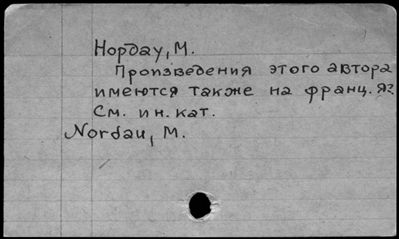 Нордау, М.
Произведения этого автора
имеются также на франц. яз
См. ин. кат.
Nordau, M.